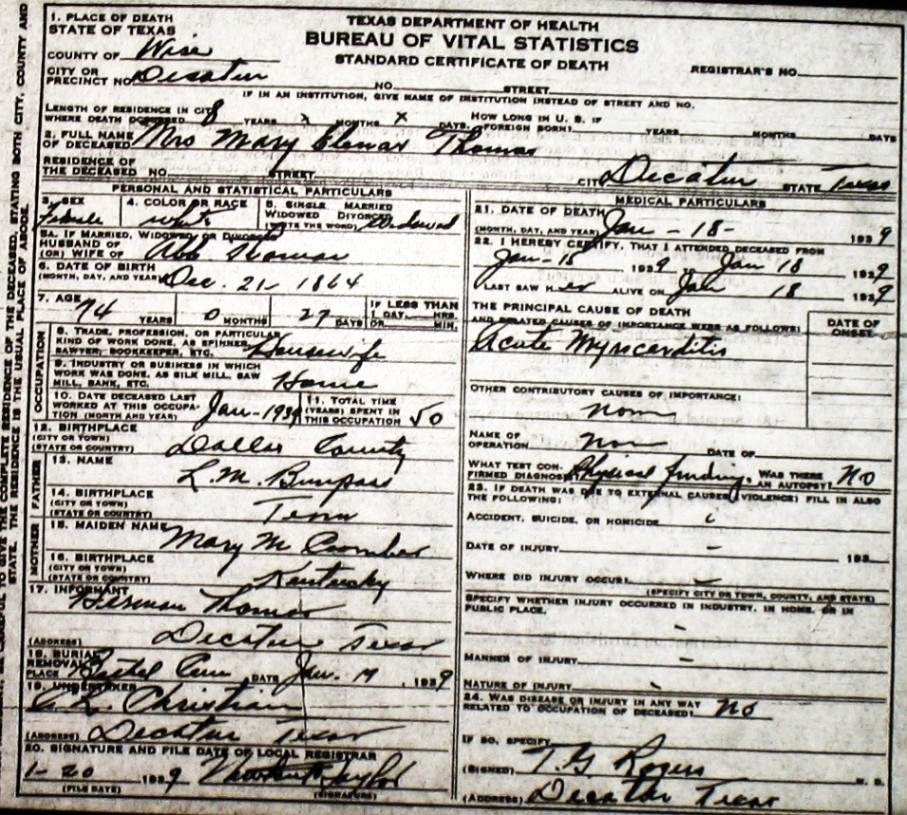 TEXAS DEPARTMENT OF HEALTH
BUREAU OF VITAL STATISTICS
STANDARD CERTIFICATE OF DEATH
REGISTRAR'S NO.
1. PLACE OF DEATH
STATE OF TEXAS
COUNTY OF Wise
CITY OR
PRECINCT NO. Decatur NO. STREET
IF IN AN INSTITUTION, GIVE NAME OF INSTITUTION INSTEAD OF STREET AND NO.
LENGTH OF RESIDENCE IN CITY
WHERE DEATH OCCURRED 8 YEARS x MONTHS x DAYS. HOW LONG IN U. S. IF FOREIGN BORN? YEARS MONTHS DAYS
2. FULL NAME
OF DECEASED Mrs Mary Thomas
RESIDENCE OF
THE DECEASED NO. STREET CITY Decatur STATE Texas
PERSONAL AND STATISTICAL PARTICULARS
3. SEX 4. COLOR OR RACE 5. SINGLE MARRIED
WIDOWED DIVORCED
Female white (WRITE THE WORD) Widowed
5A. IF MARRIED, WIDOWED OR DIVORCED
HUSBAND OF
(OR) WIFE OF Abe Thomas
6. DATE OF BIRTH
(MONTH, DAY, AND YEAR) Dec. 21 - 1864
7. AGE IF LESS THAN
74 YEARS 0 MONTHS 27 DAYS 1 DAY HRS.
OR MIN.
OCCUPATION
8. TRADE, PROFESSION, OR PARTICULAR
KIND OF WORK DONE, AS SPINNER,
SAWYER, BOOKKEEPER, ETC. Housewife
9. INDUSTRY OR BUSINESS IN WHICH
WORK WAS DONE, AS SILK MILL, SAW
MILL, BANK, ETC. Home
10. DATE DECEASED LAST
WORKED AT THIS OCCUPA-
TION (MONTH AND YEAR) Jan-1939
11. TOTAL TIME
(YEARS) SPENT IN
THIS OCCUPATION 50
12. BIRTHPLACE
(CITY OR TOWN)
(STATE OR COUNTRY) Dallas County
FATHER
13. NAME L. M. Bumpass
14. BIRTHPLACE
(CITY OR TOWN)
(STATE OR COUNTRY) Tenn
MOTHER
15. MAIDEN NAME Mary M
16. BIRTHPLACE
(CITY OR TOWN)
(STATE OR COUNTRY) Kentucky
17. INFORMANT Herman Thomas
(ADDRESS) Decatur Texas
18. BURIAL
REMOVAL
PLACE Bethel Cem DATE Jan. 19, 1939
19. UNDERTAKER
Christian
(ADDRESS) Decatur Texas
20. SIGNATURE AND FILE DATE OF LOCAL REGISTRAR
1-20 1939 Taylor
(FILE DATE) (SIGNATURE)
MEDICAL PARTICULARS
21. DATE OF DEATH
(MONTH, DAY, AND YEAR) Jan - 18 - 1939
22. I HEREBY CERTIFY, THAT I ATTENDED DECEASED FROM
Jan-18 1939 to Jan 18 1939
LAST SAW H er ALIVE ON Jan 18 1939
THE PRINCIPAL CAUSE OF DEATH
AND RELATED CAUSES OF IMPORTANCE WERE AS FOLLOWS:
DATE OF
ONSET
Acute Myocarditis
OTHER CONTRIBUTORY CAUSES OF IMPORTANCE:
none
NAME OF
OPERATION non DATE OF
WHAT TEST CON-
FIRMED DIAGNOSIS? Physical finding. WAS THERE
AN AUTOPSY? No
23. IF DEATH WAS DUE TO EXTERNAL CAUSES (VIOLENCE) FILL IN ALSO
THE FOLLOWING:
ACCIDENT, SUICIDE, OR HOMICIDE
DATE OF INJURY - 193
WHERE DID INJURY OCCUR? -
(SPECIFY CITY OR TOWN, COUNTY, AND STATE)
SPECIFY WHETHER INJURY OCCURRED IN INDUSTRY, IN HOME, OR IN
PUBLIC PLACE.
-
MANNER OF INJURY -
NATURE OF INJURY -
24. WAS DISEASE OR INJURY IN ANY WAY
RELATED TO OCCUPATION OF DECEASED? No
IF SO, SPECIFY
(SIGNED) T. G Rogers M. D.
(ADDRESS) Decatur Texas
TO GIVE THE COMPLETE RESIDENCE OF THE DECEASED, STATING BOTH CITY, COUNTY AND
STATE. THE RESIDENCE IS THE USUAL PLACE OF ABODE.